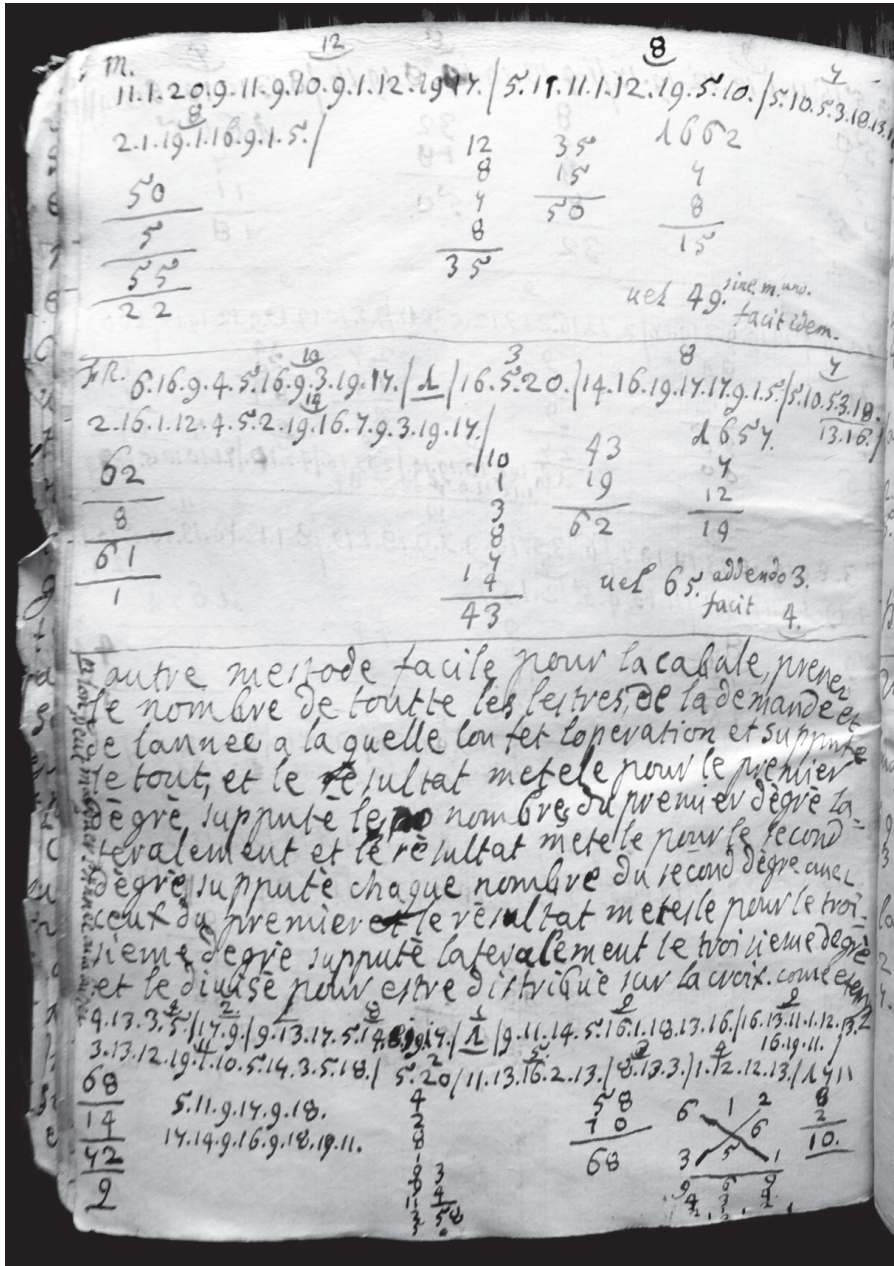 12 8 7
m.
11.1.20.9.11.9.10.9.1.12.19.17./5.17.11.1.12.19.5.10./5.10.5.3.18.13.1
8
2.1.19.1.16.9.1.5./
12 35 1662
8 15 7
50 7 50 8
5 8 15
55 35
22
uel 49. sine m. uno.
facit idem.
10 3 8 7
FR. 6.16.9.4.5.16.9.3.19.17./1/16.5.20./14.16.19.17.17.9.1.5/5.10.5.3.18.
14
2.16.1.12.4.5.2.19.16.7.9.3.19.17./ 13.16./
10 43 1657
62 1 19 7
8 3 62 12
61 8 19
1 7
14
43
uel 65. addendo 3.
facit 4.
autre metode facile pour la cabale, prener
le nombre de toutte les lestres, de la demande et
de lannee a la quelle lon fet loperation et suppute
le tout, et le resultat metele pour le premier
dègrè, supputè le nombre du premier dègrè la=
teralement et le rèsultat metele pour le second
dègrè, supputè chaque nombre du second dègre auec
ceux du premier et le rèsultat metele pour le troi-
sieme dègrè supputè lateralement le troisieme degrè
et le divisè pour estre distribuè sur la croix. come
9.13.3.5/17.9./9.13.17.5.14. /1/9.11.14.5.16.1.18.13.16./16.13.11.1.12.13.2
16.19.11./
3.13.12.19.1.10.5.14.3.5.18./5.20/11.13.16.2.13./8.13.3./1.12.12.13./
68
14
72
9
5.11.9.17.9.18.
17.14.9.16.9.18.19.11.
4
2
8
1
58
10
68
6 1 2
6
3 5 1
9 6 9
8
2
10.